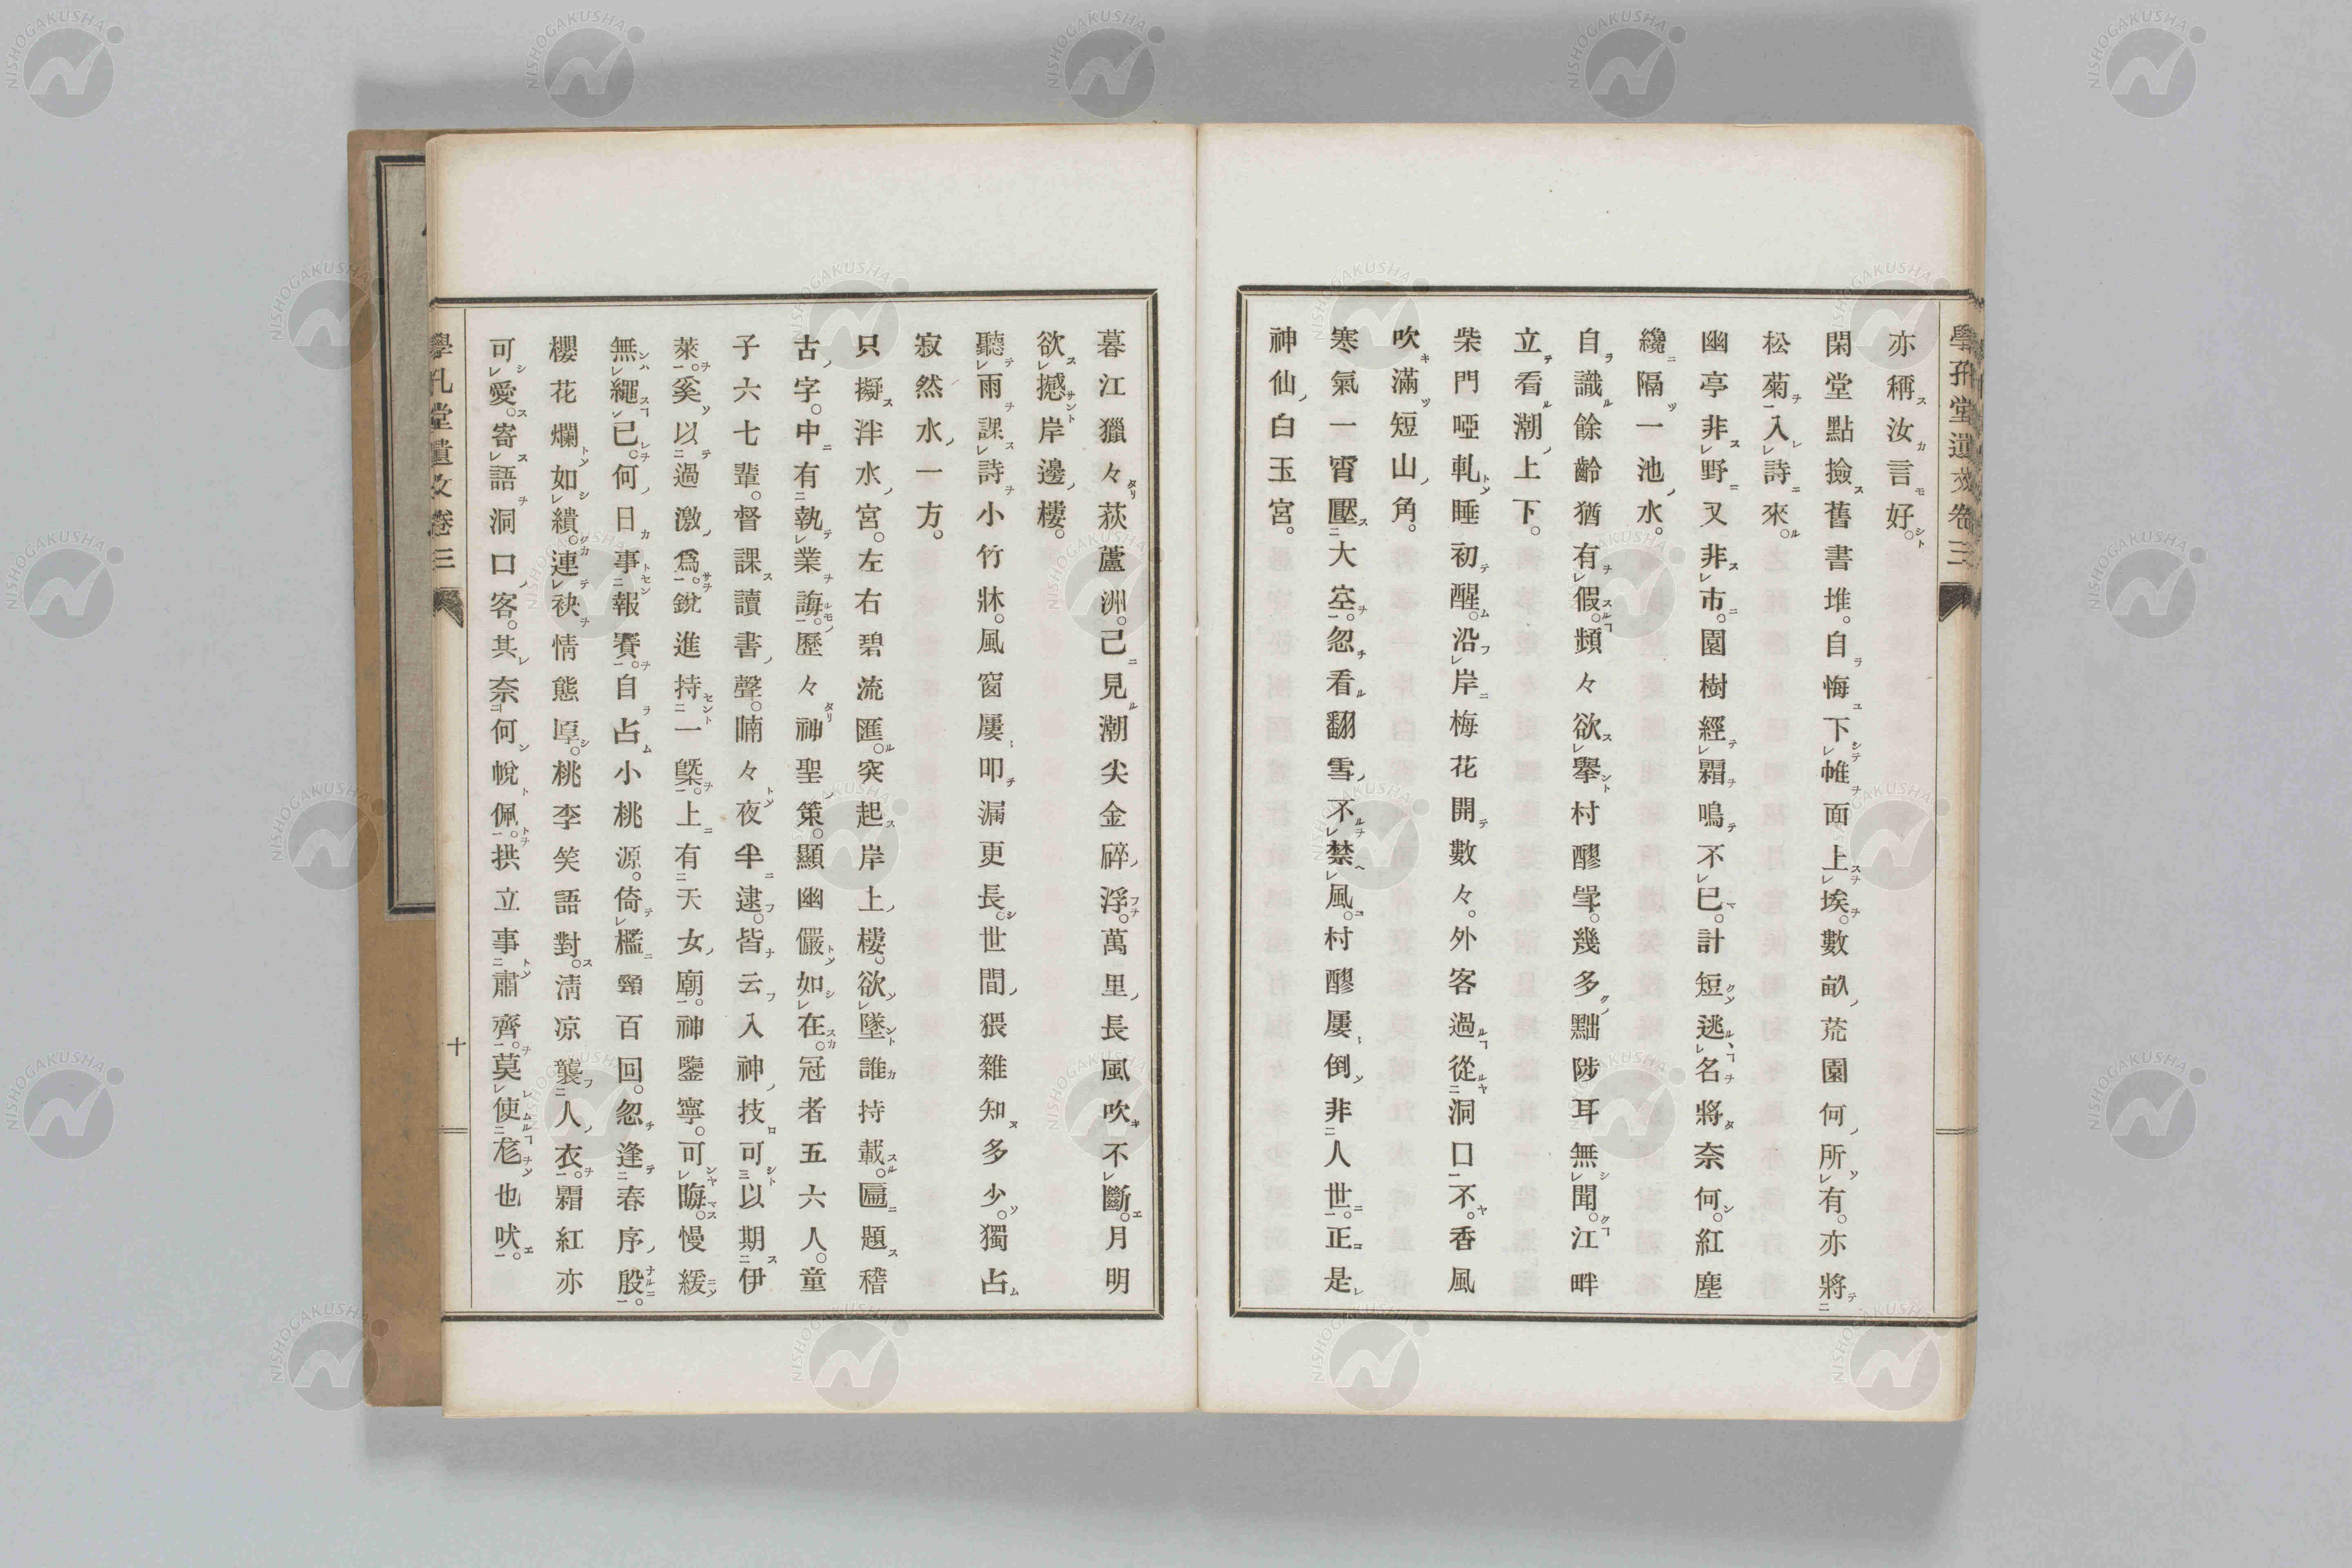 學孔堂遺文卷三
亦稱汝言好。
閑堂點撿舊書堆。自悔下帷面上埃。數畝荒園何所有。亦將
松菊入詩來。
幽亭非野又非市。園樹經霜鳴不已。計短逃名將奈何。紅塵
纔隔一池水。
自識餘齡猶有假。頻々欲擧村醪斝。幾多黜陟耳無聞。江畔
立看潮上下。
柴門啞軋睡初醒。沿岸梅花開數々。外客過從洞口不。香風
吹滿短山角。
寒氣一宵壓大空。忽看翻雪不禁風。村醪屢倒非人世。正是
神仙白玉宮。
暮江獵々荻蘆洲。已見潮尖金碎浮。萬里長風吹不斷。月明
欲撼岸邊樓。
聽雨課詩小竹牀。風窗屢叩漏更長。世間猥雜知多少。獨占
寂然水一方。
只擬泮水宮。左右碧流匯。突起岸上樓。欲墜誰持載。匾題稽
古字。中有執業誨。歷々神聖策。顯幽儼如在。冠者五六人。童
子六七輩。督課讀書聲。喃々夜半逮。皆云入神技可以期伊
萊。奚以過激爲。銳進持一槩。上有天女廟。神鑒寧可晦。慢緩
無繩已。何日事報賽。自占小桃源。倚檻頸百回。忽逢春序殷。
櫻花爛如繢。連袂情態厚。桃李笑語對。淸凉襲人衣。霜紅亦
可愛。寄語洞口客。其奈何帨佩。拱立事肅齊。莫使尨也吠。
學孔堂遺文卷三
十
NISHOGAKUSHA